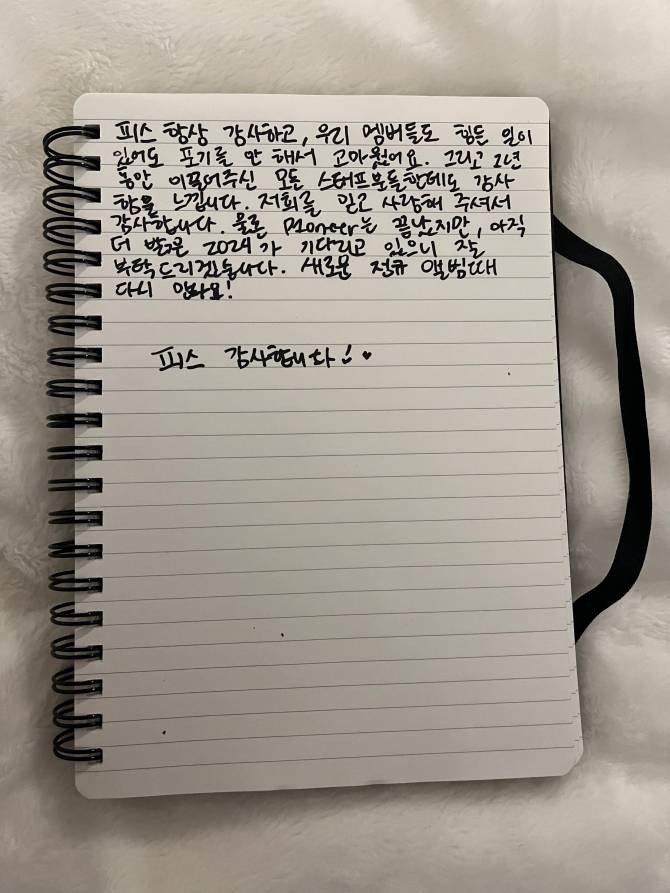 피스 항상 감사하고, 우리 멤버들도 힘든 일이
있어도 포기를 안 해서 고마웠어요. 그리고 1년
동안 이끌어주신 모든 스태프분들한테도 감사
함을 느낍니다. 저희를 믿고 사랑해 주셔서
감사합니다. 물론 P1oneer는 끝났지만, 아직
더 밝은 2024가 기다리고 있으니 잘
부탁드리겠습니다. 새로운 정규 앨범때
다시 만나요!
피스 감사합니다! ♥